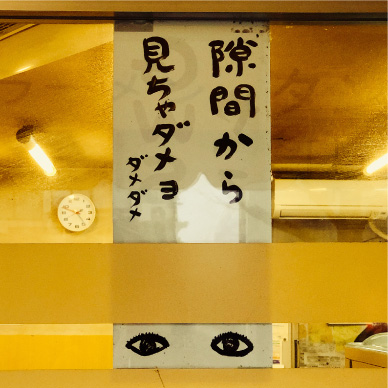 隙間から
見ちゃダメヨ
ダメダメ